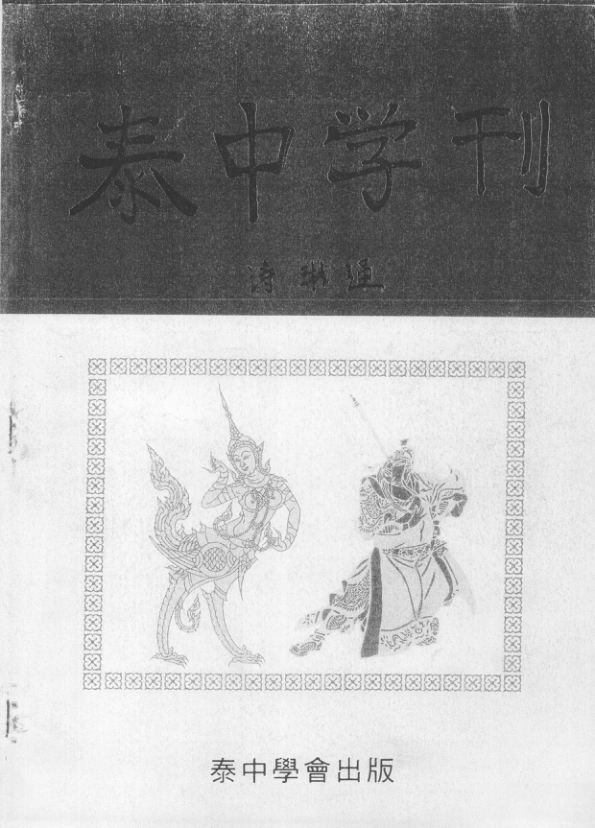 泰中学刊
泰中學會出版